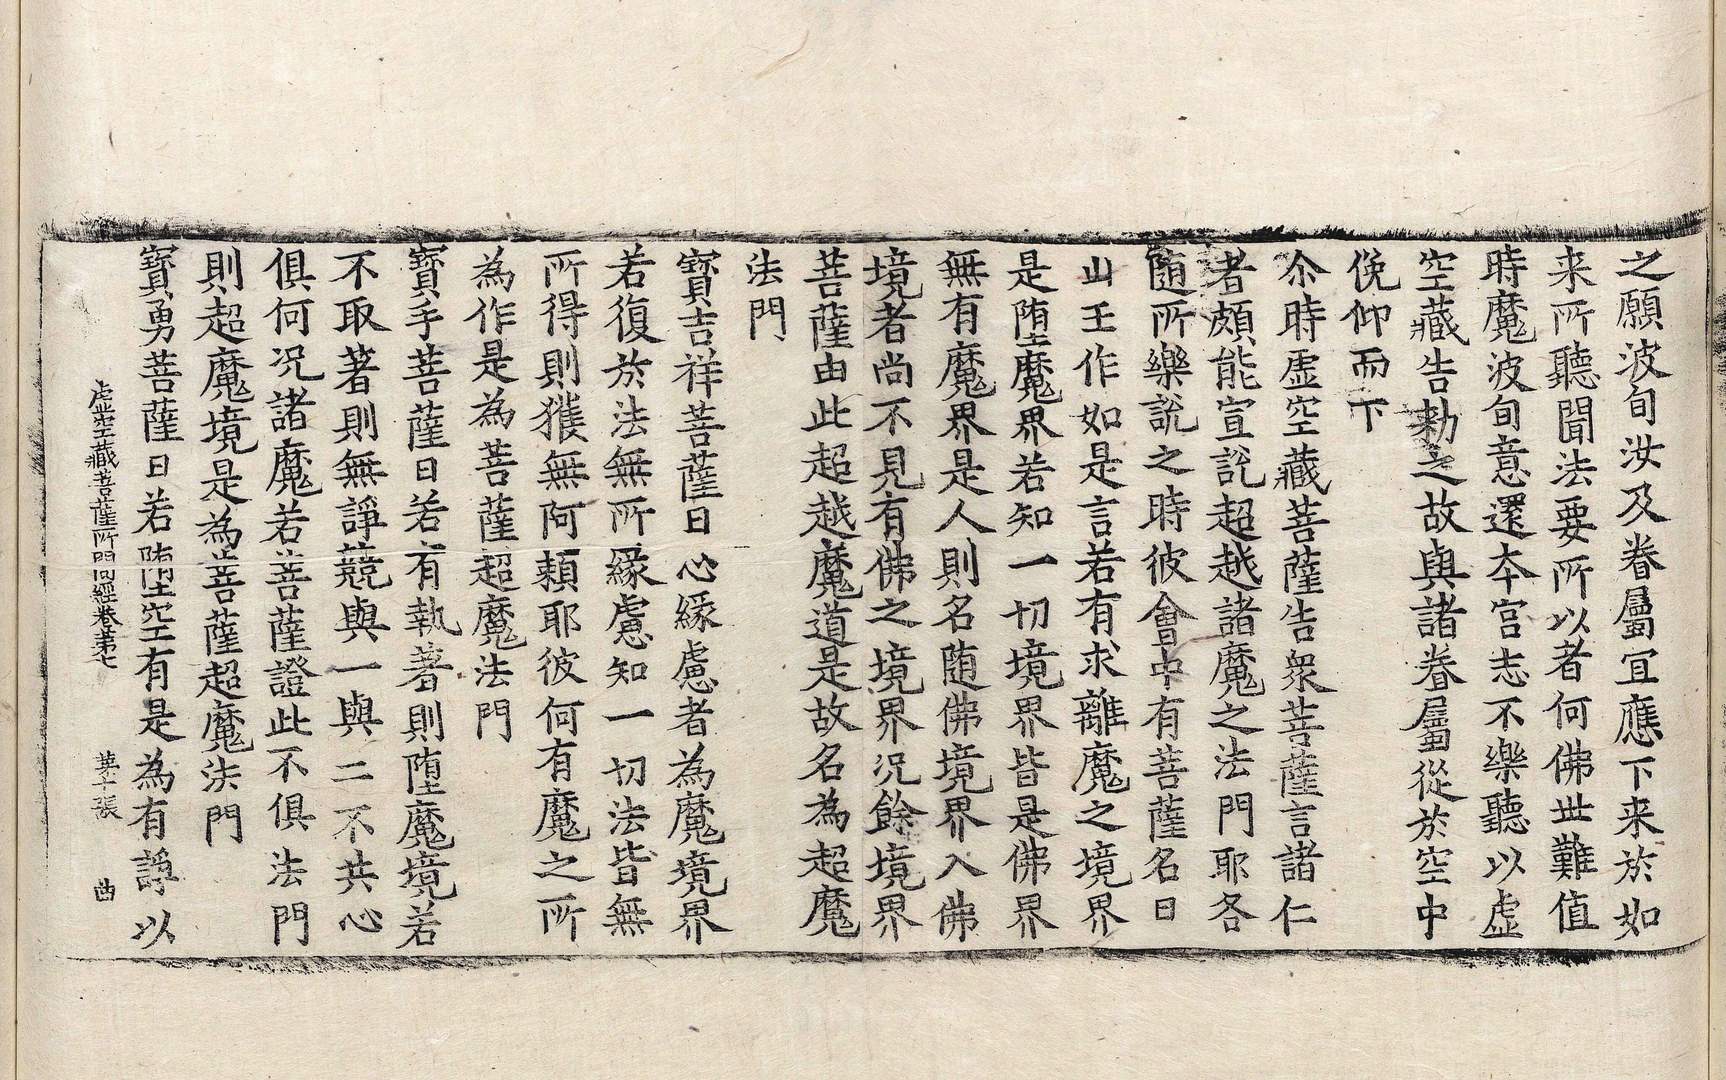 之願波旬汝及眷屬宜應下来於如
来所聽聞法要所以者何佛世難值
時魔波旬意還本宫志不樂聽以虛
空藏告勑之故與諸眷屬從於空中
俛仰而下
尒時虛空藏菩薩告衆菩薩言諸仁
者頗能宣說超越諸魔之法門耶各
随所樂說之時彼會中有菩薩名曰
山王作如是言若有求離魔之境界
是堕魔界若知一切境界皆是佛界
無有魔界是人則名随佛境界入佛
境者尚不見有佛之境界况餘境界
菩薩由此超越魔道是故名為超魔
法門
寳吉祥菩薩曰心緣慮者為魔境界
若復於法無所緣慮知一切法皆無
所得則獲無阿頼耶彼何有魔之所
為作是為菩薩超魔法門
寳手菩薩曰若有執著則堕魔境若
不取著則無諍競與一與二不共心
俱何况諸魔若菩薩證此不俱法門
則超魔境是為菩薩超魔法門
寳勇菩薩曰若堕空有是為有諍以
虛空藏菩薩所問經卷第七 第十張 曲